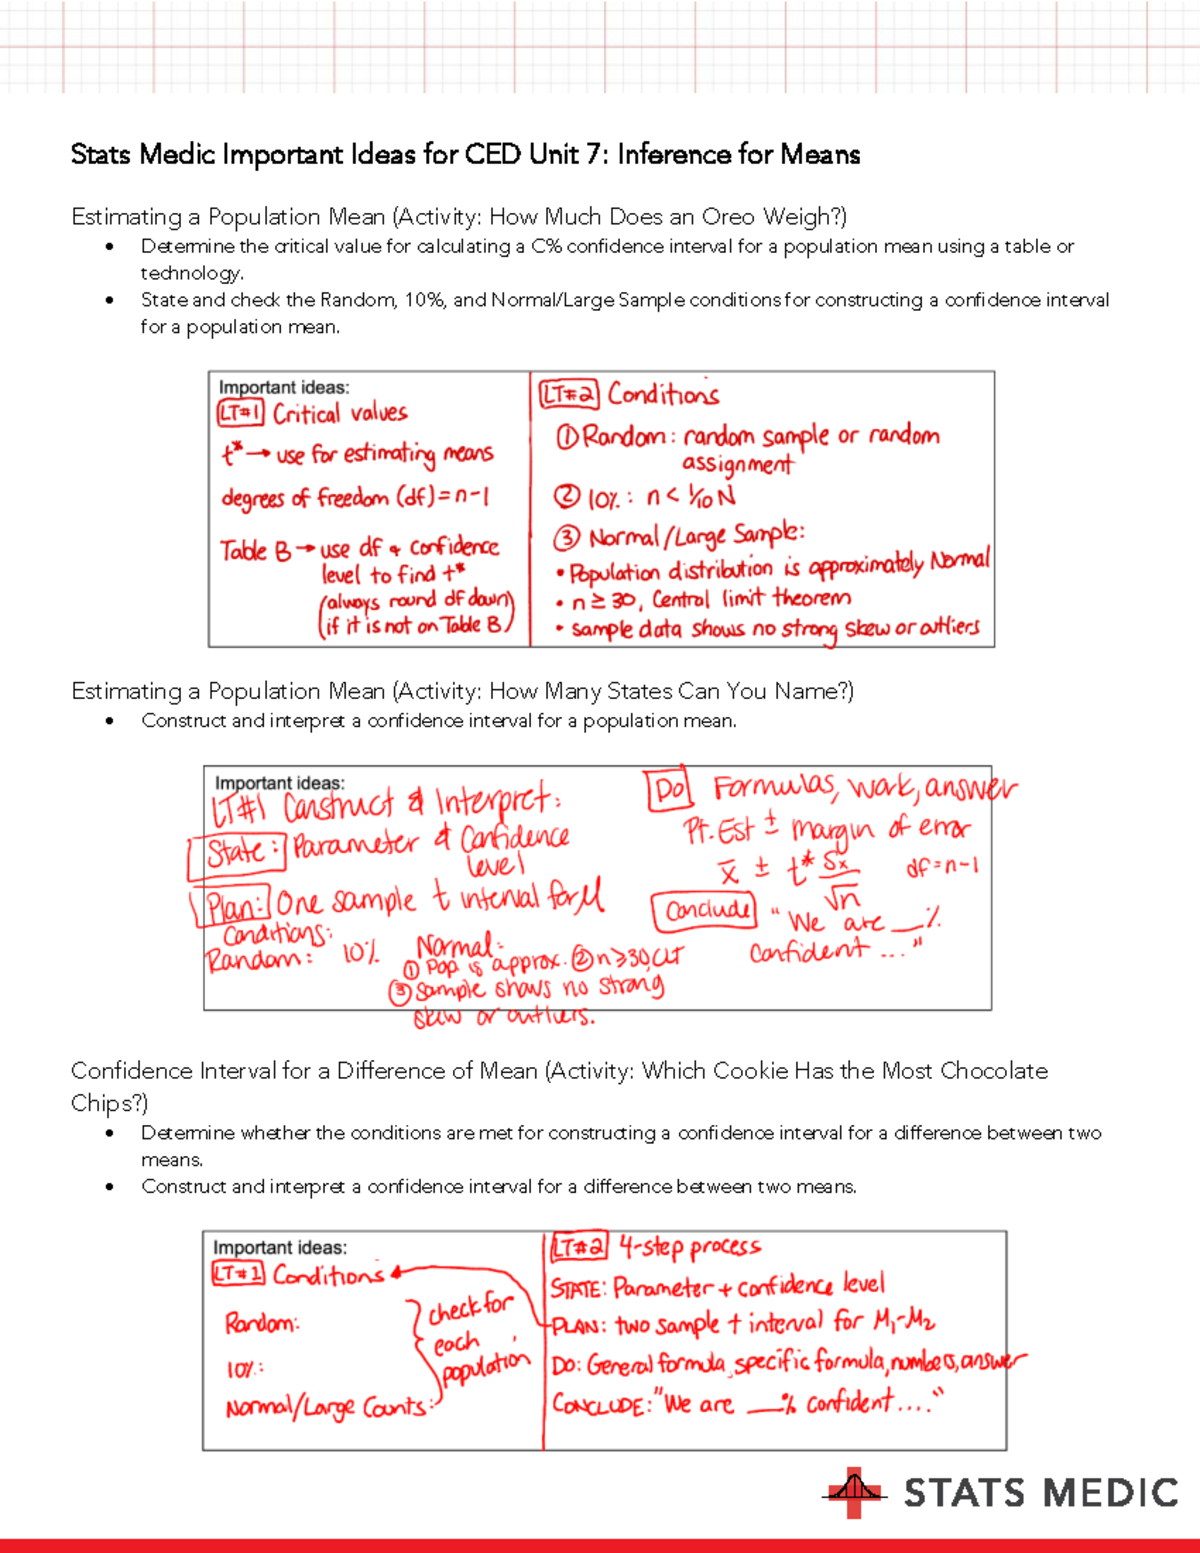 Stats Medic Important Ideas for CED Unit 7: Inference for Means
Estimating a Population Mean (Activity: How Much Does an Oreo Weigh?)
• Determine the critical value for calculating a C% confidence interval for a population mean using a table or
technology.
• State and check the Random, 10%, and Normal/Large Sample conditions for constructing a confidence interval
for a population mean.
Important ideas:
LT#1 Critical values
t* → use for estimating means
degrees of freedom (df) = n-1
Table B → use df & confidence
level to find t*
(always round df down)
(if it is not on Table B)
LT#2 Conditions
① Random: random sample or random
assignment
② 10%: n < 1/10 N
③ Normal/Large Sample:
• Population distribution is approximately Normal
• n ≥ 30, Central limit theorem
• sample data shows no strong skew or outliers
Estimating a Population Mean (Activity: How Many States Can You Name?)
• Construct and interpret a confidence interval for a population mean.
Important ideas:
LT#1 Construct & Interpret:
State: Parameter & Confidence
level
Plan: One sample t interval for μ
Conditions:
Random: 10% Normal:
① Pop is approx. ② n≥30, CLT
③ Sample shows no strong
skew or outliers.
Do Formulas, work, answer
Pt. Est ± margin of error
x̄ ± t* Sx/√n df = n-1
Conclude "We are __%
Confident ..."
Confidence Interval for a Difference of Mean (Activity: Which Cookie Has the Most Chocolate
Chips?)
• Determine whether the conditions are met for constructing a confidence interval for a difference between two
means.
• Construct and interpret a confidence interval for a difference between two means.
Important ideas:
LT#1 Conditions
Random:
10%:
Normal/Large Counts:
check for
each
population
LT#2 4-step process
STATE: Parameter + confidence level
PLAN: two sample t interval for M₁-M₂
DO: General formula, specific formula, numbers, answer
CONCLUDE: "We are __% confident...."
STATS MEDIC